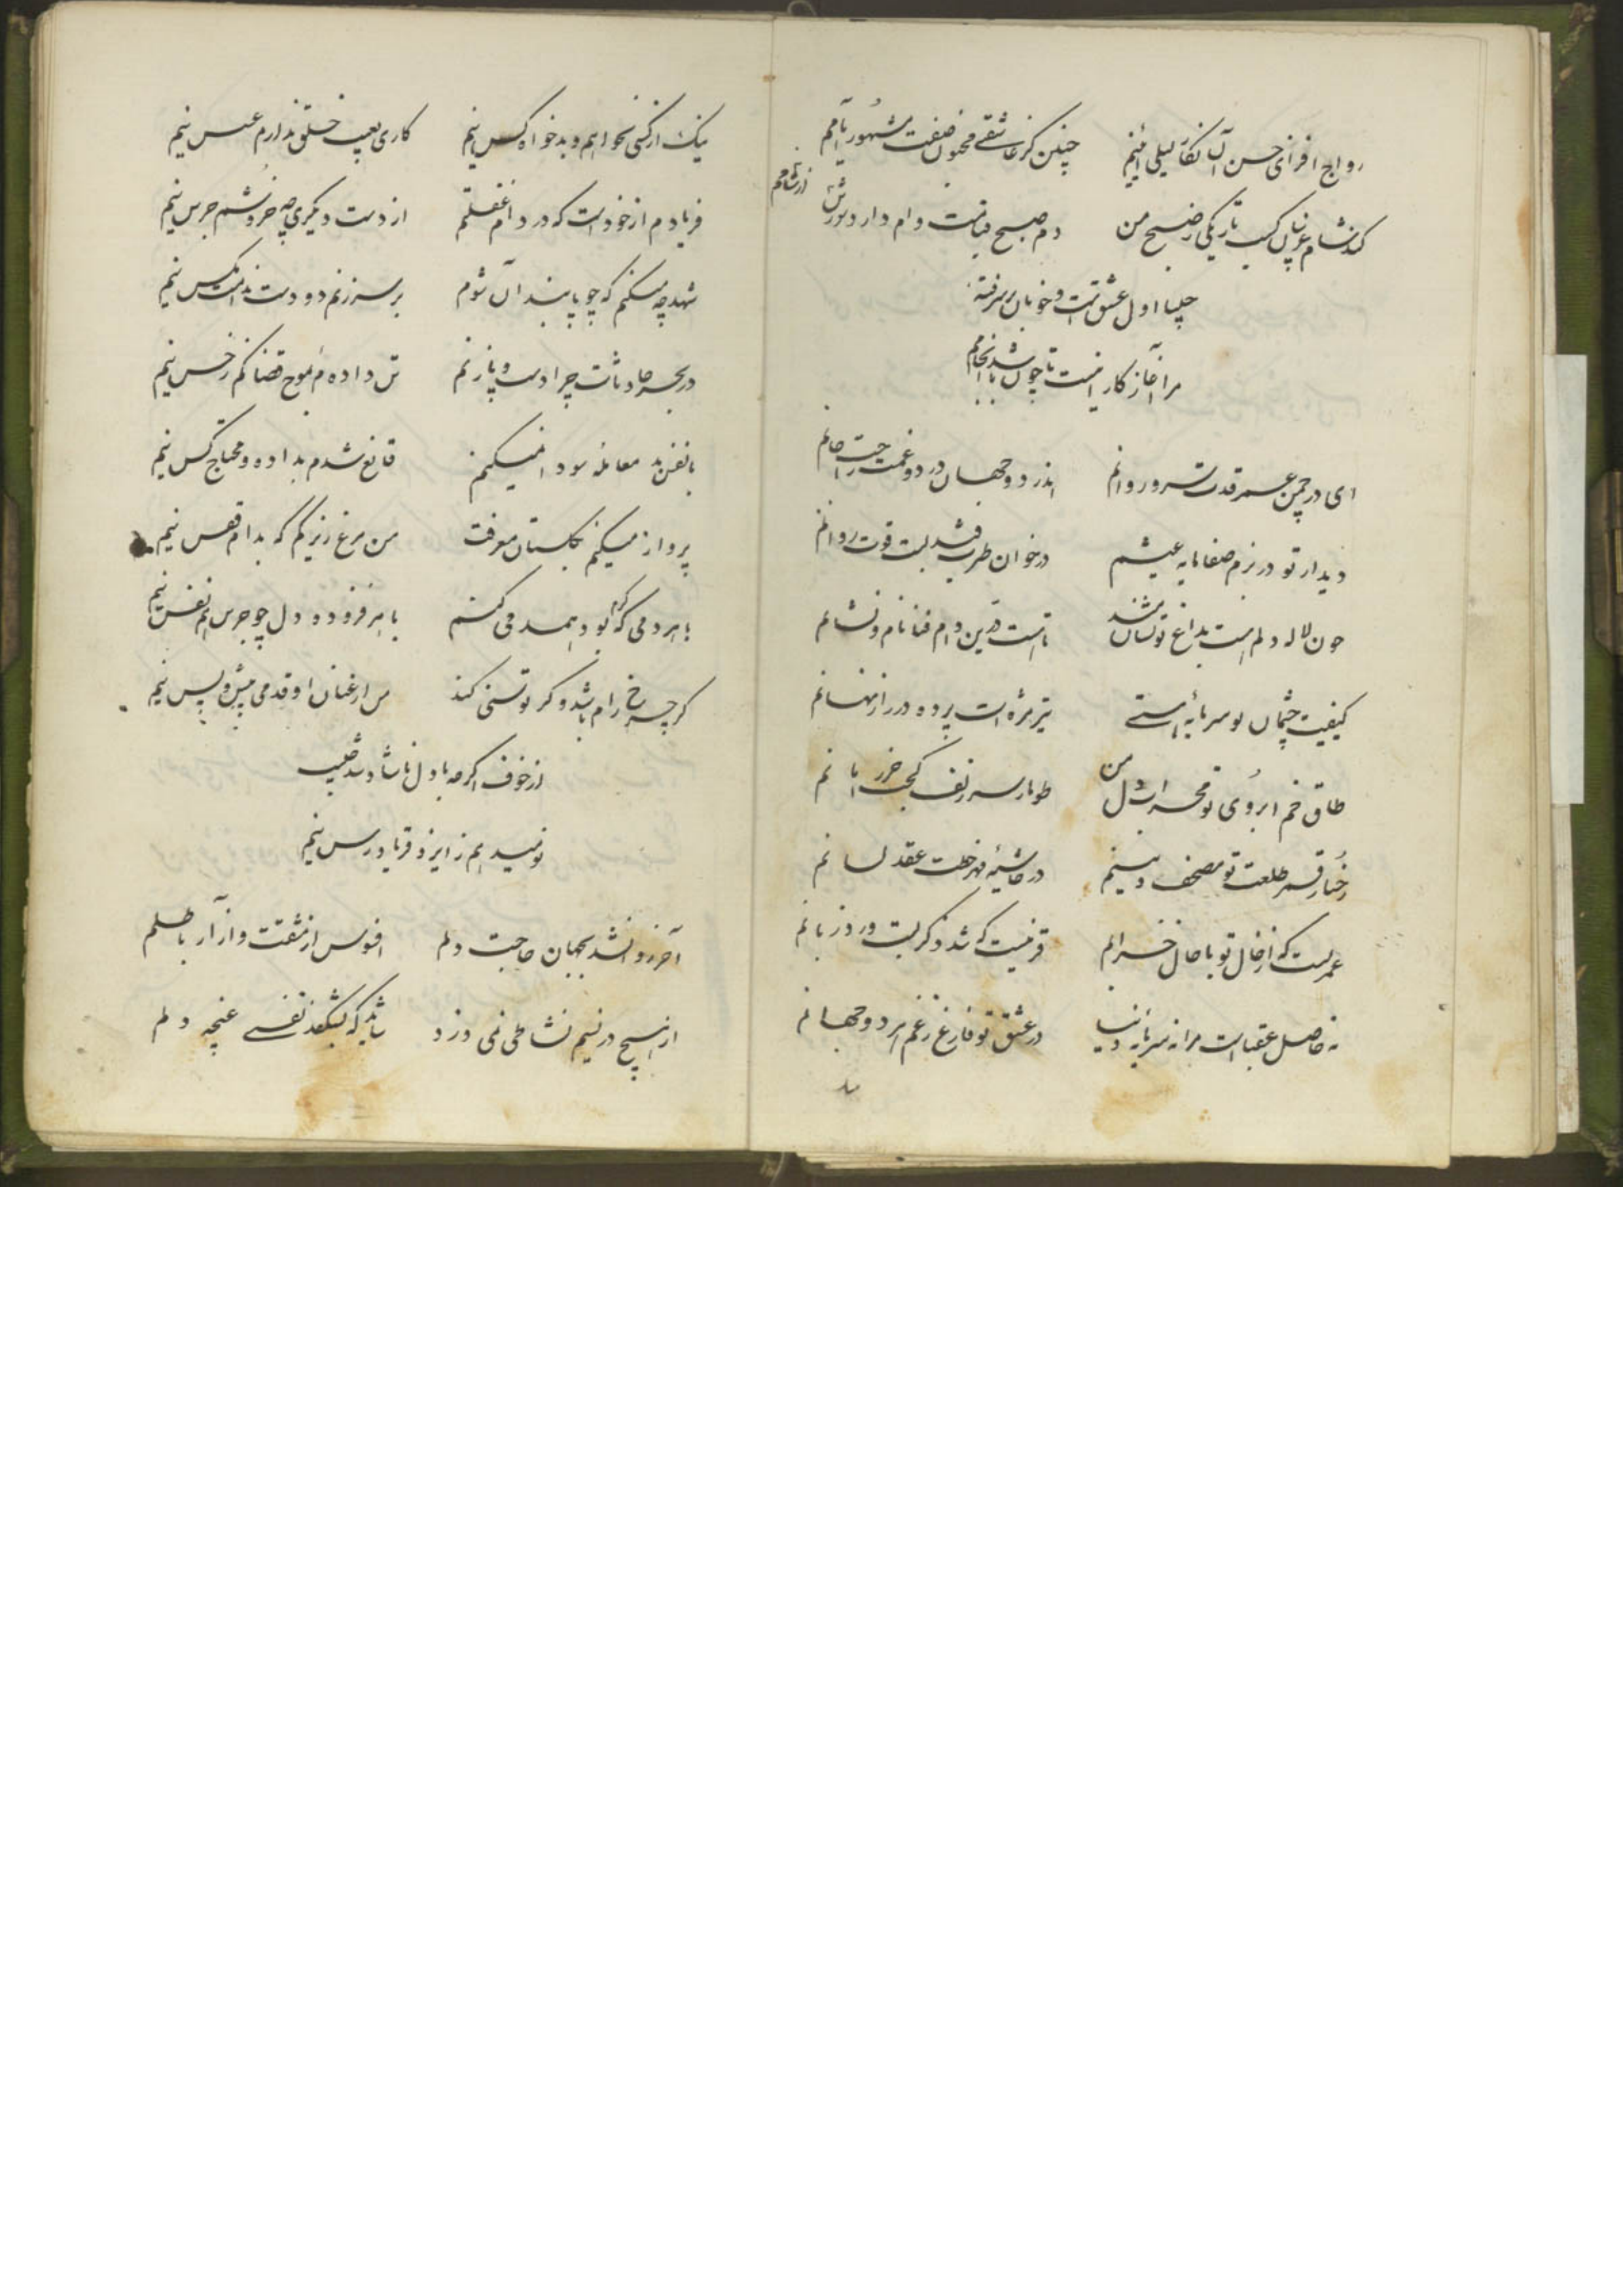 رواج افزای حسن آن نگار لیلی آئینم چنین کز عاشقی مجنون صفت مشهور ایامم
کند شام غریبان کسب تاریکی ز صبح من دم صبح قیامت وام دارد شورش از شامم
چلیپا اول عشق است و خوبان بر سر فتنه
مرا آغاز کار اینست تا چون باشد انجامم
ای در چمن عمر قدت سرو روانم اندر دو جهان درد و غمت راحت جانم
دیدار تو در بزم صفا مایه عیشم در خوان طرب قند لبت قوت روانم
چون لاله دلم است بداغ تو نشانمند تا هست درین دام فنا نام و نشانم
کیفیت چشمان تو سرمایه مستی تیر مژه‌ات پرده در راز نهانم
طاق خم ابروی تو محراب دل من طومار سر زلف کجت حرز امانم
رخسار قمر طلعت تو مصحف دینم در حاشیهٔ مهر خطت عقد لسانم
عمریست که از خال تو با حال خرابم قرنیست که شد ذکر لبت ورد زبانم
نه حاصل عقبا است مرا نه سرمایه دنیا در عشق تو فارغ ز غم هر دو جهانم
نیک از کسی نخواهم و بدخواه کس نیم کاری بعیب خلق ندارم عسس نیم
فریادم از خود است که در دام غفلتم از دست دیگری چه خروشم جرس نیم
شهد چه میکنم که چو پابند آن شوم بر سر زنم دو دست ندامت مگس نیم
در بحر حادثات چرا دست و پا زنم تن داده‌ام بموج قضا کم ز خس نیم
با نفس بد معامله سودا نمیکنم قانع شدم بداده و محتاج کس نیم
پرواز میکنم بگلستان معرفت من مرغ زیرکم که بدام قفس نیم
با هر دمی که بود همدمی کنم با هر فزوده دل چو جرس هم نفس نیم
گر چرخ رام باشد و گر توسنی کند من از عنان او قدمی پیش و پس نیم
از خوف اگر چه با دل ناشاد شد
نومید هم ز ایزد فریادرس نیم
آخر روا نشد بجهان حاجت دلم افسوس از مشقت و از آر باطلم
از هیچ در نسیم نشاطی نمی وزد شاید که بشکفد نفسی غنچه دلم